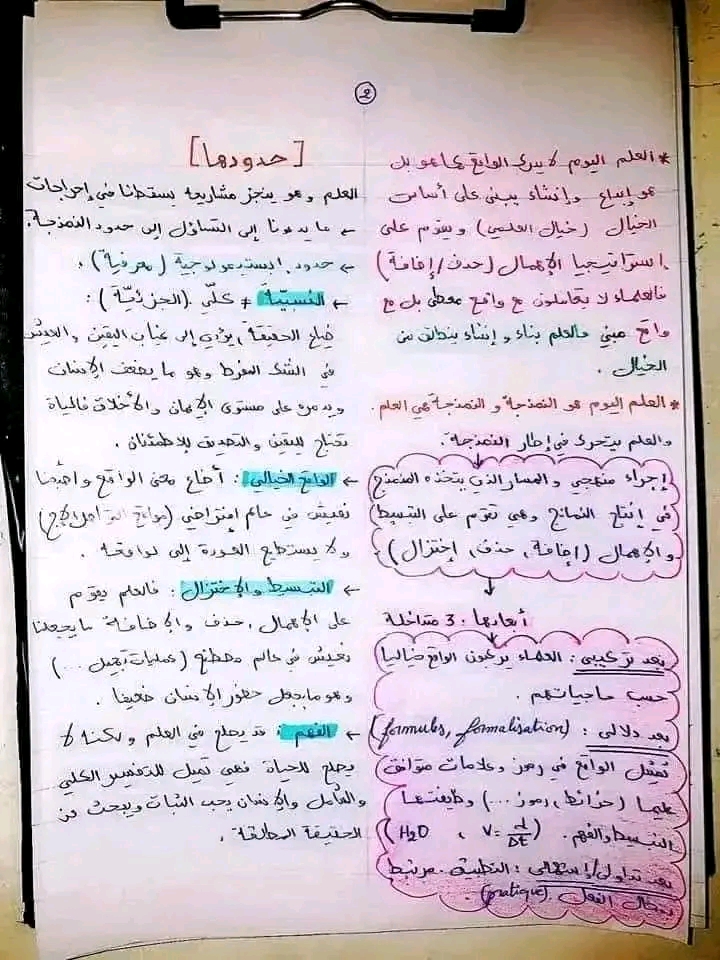 2
* العلم اليوم لا يدرك الواقع كما هو بل
هو إبداع وإنشاء يبنى على أساس
الخيال (خيال العلمي) ويقوم على
إستراتيجيا الإهمال (حذف/إضافة)
فالعلماء لا يتعاملون مع واقع معطى بل مع
واقع مبني فالعلم بناء و إنشاء ينطلق من
الخيال .
* العلم اليوم هو النمذجة و النمذجة هي العلم.
والعلم يتحرك في إطار النمذجة.
إجراء منهجي والمسار الذي يتخذه المنمذج
في إنتاج النماذج وهي تقوم على التبسيط
والإهمال (إضافة، حذف، إختزال)
أبعادها : 3 متداخلة
بعد تركيبي : العلماء يركبون الواقع خياليا
حسب حاجياتهم .
بعد دلالي : (formules, formalisation)
تمثيل الواقع في رموز وعلامات متوافق
عليها (خرائط، رموز ...) وظيفتها
التبسيط والفهم. (H2O , V = d/Δt)
بعد تداولي/إستعمالي : التطبيق مرتبط
بمجال الفعل (pratique).
[حدودها]
العلم وهو ينجز مشاريعه يسقطنا في إحراجات
← ما يدعونا إلى التساؤل إلى حدود النمذجة.
← حدود إبستيمولوجية (معرفية) .
← النسبية ≠ كلّي (الجزئيّة) :
ضياع الحقيقة يؤدي إلى غياب اليقين والعيش
في الشك المفرط وهو ما يضعف الإنسان
ويدمره على مستوى الإيمان والأخلاق فالحياة
تحتاج لليقين والتصديق للإطمئنان .
← الواقع الخيالي : أضاع معنى الواقع وأصبحنا
نعيش في عالم إفتراضي (مواقع التواصل الإج)
ولا يستطيع العودة إلى واقعه .
← التبسيط والإختزال : فالعلم يقوم
على الإهمال، حذف والإضافة ما يجعلنا
نعيش في عالم مصطنع (عمليات تجميل ...)
وهو ما يجعل حضور الإنسان ضعيفا .
← الفهم : قد يصلح في العلم ولكنه لا
يصلح للحياة فهي تميل للتفسير الكلي
والشامل والإنسان يحب الثبات ويبحث عن
الحقيقة المطلقة .